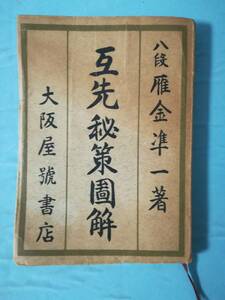 八段 雁金準一著
互先秘策圖解
大阪屋號書店